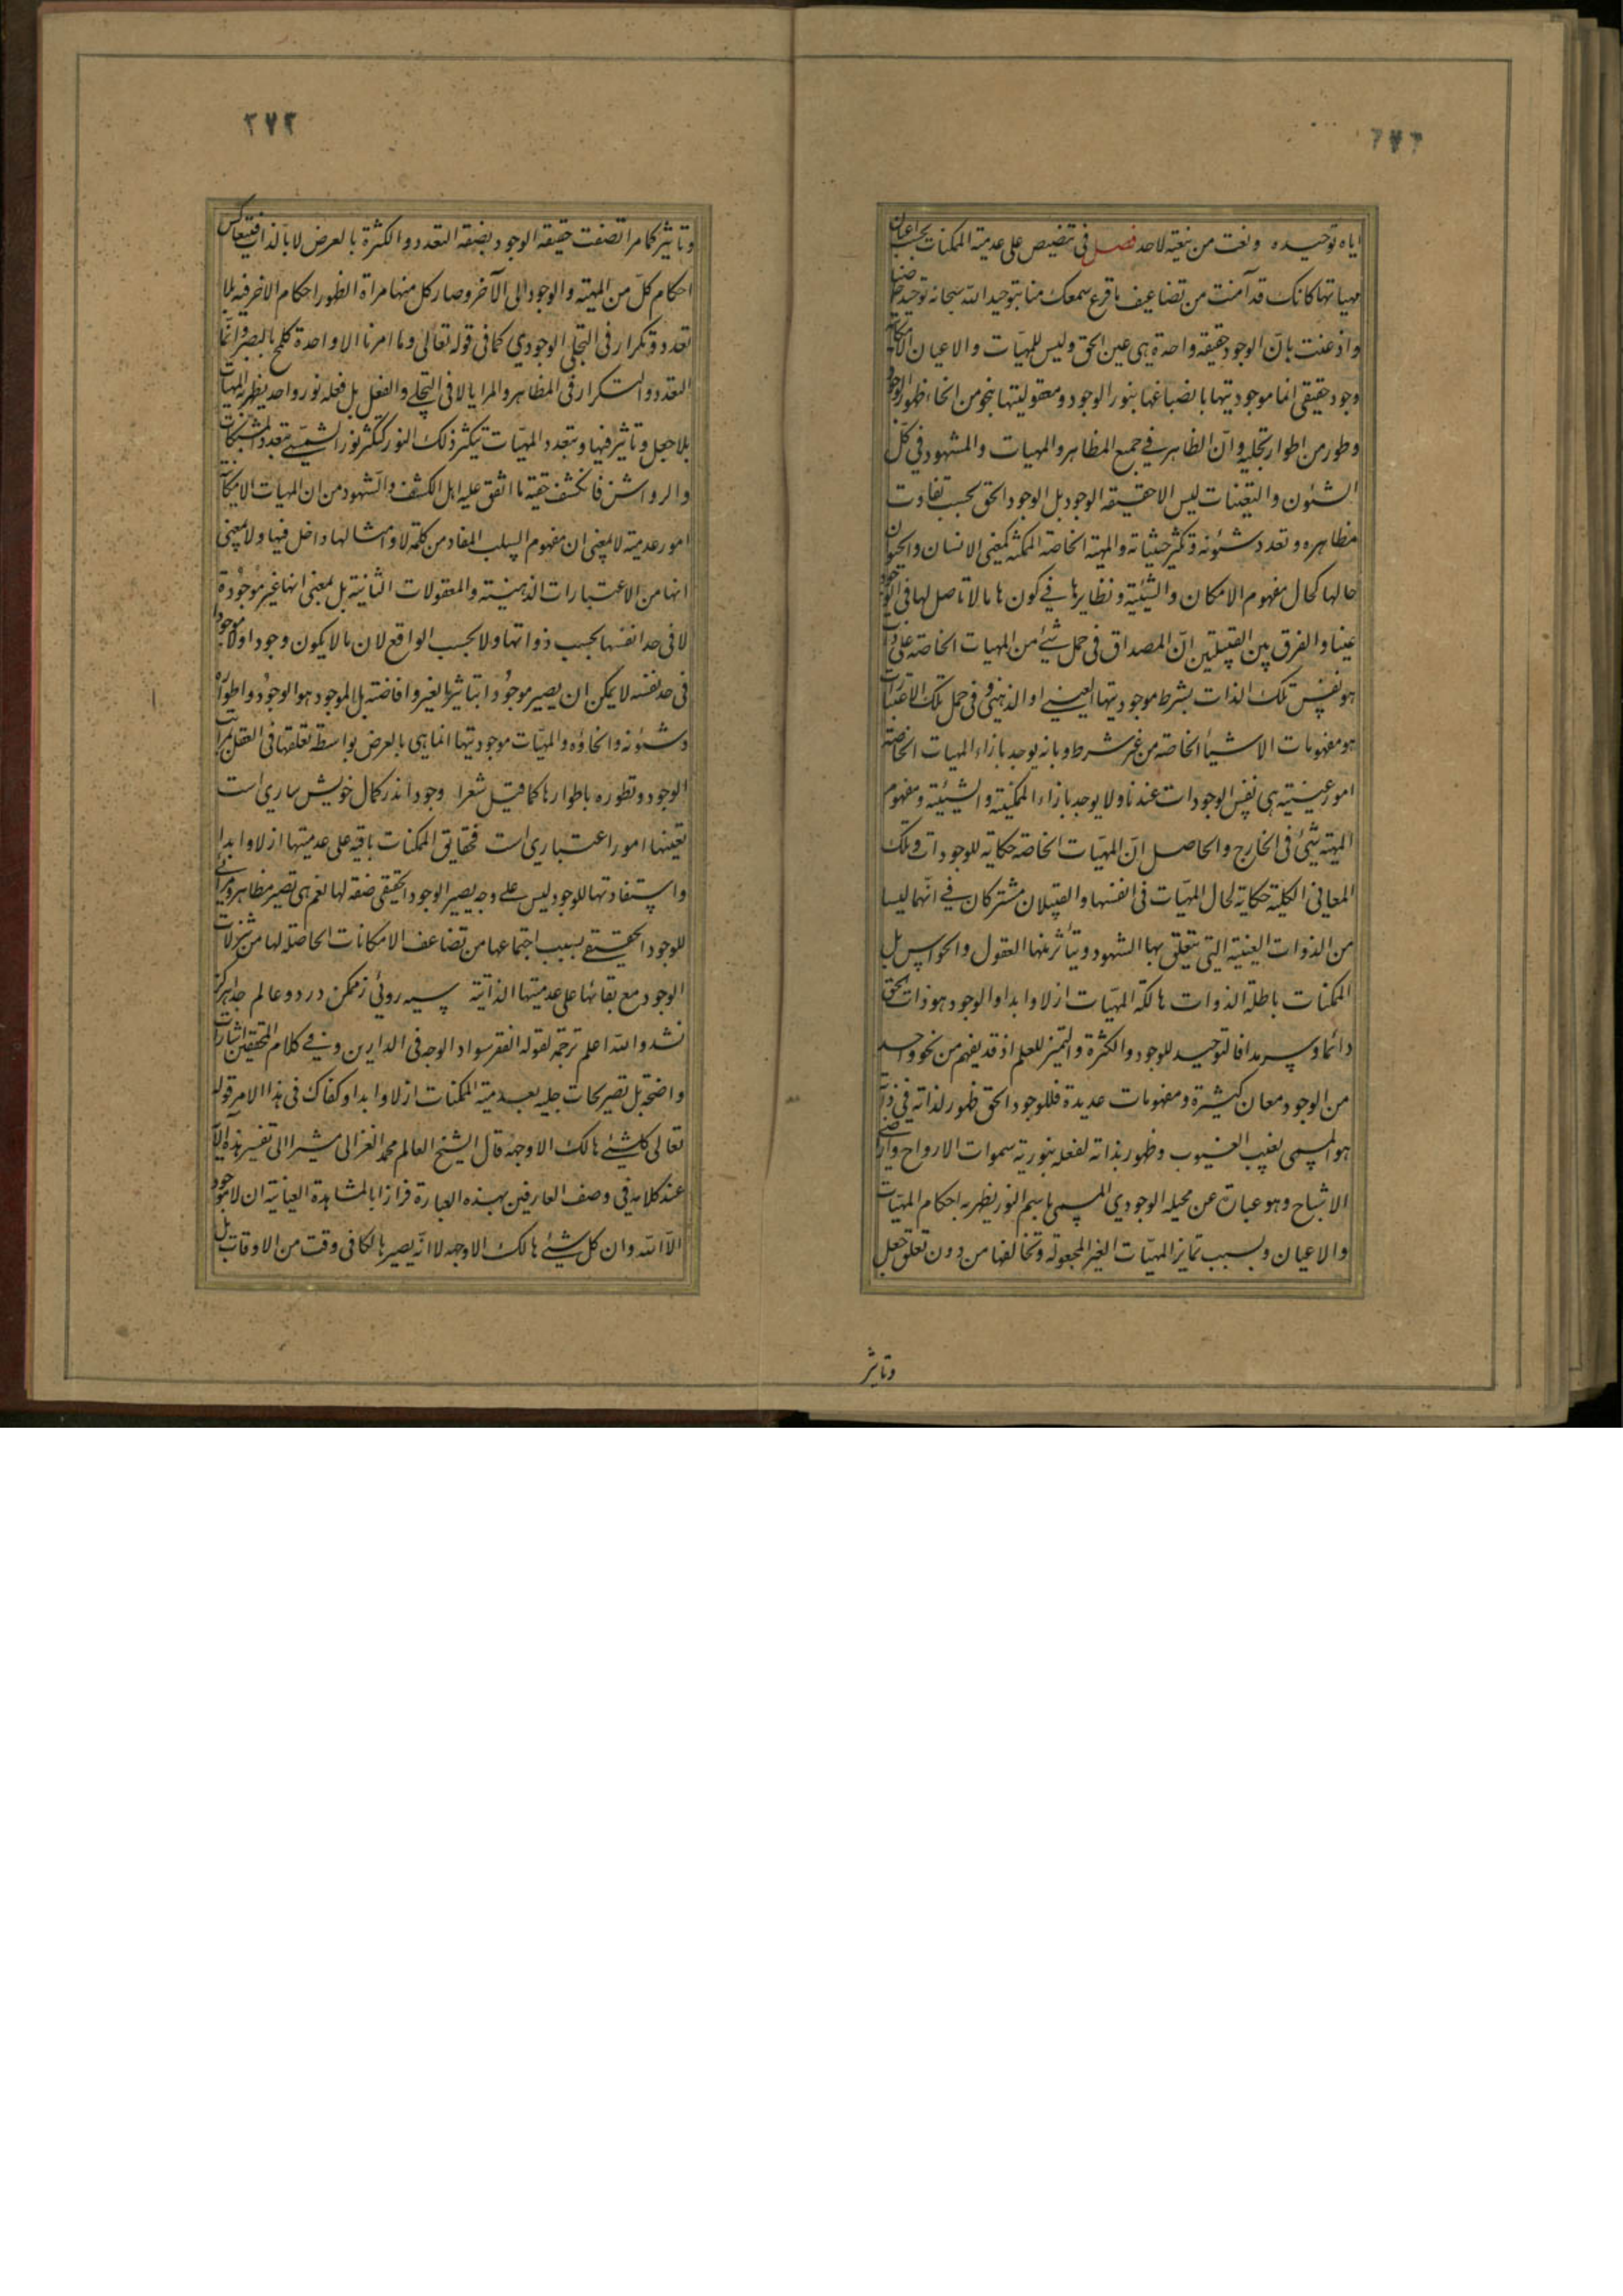 ٢٧٢
اياه توحيده ونعت من ينعته لاحد فصل فى تنصيص على عدمية الممكنات بحسب اعيان
مهياتها كانك قد آمنت من تضاعيف ما قرع سمعك منا بتوحيد الله سبحانه توحيدا خاصيا
واذعنت بان الوجود حقيقة واحدة هى عين الحق وليس للمهيات والاعيان الامكانية
وجود حقيقى انما موجوديتها بانصباغها بنور الوجود ومعقوليتها بنحو من انحاء ظهور الوجود
وطور من اطوار تجليه وان الظاهر فى جميع المظاهر والمهيات والمشهود فى كل
الشئون والتعينات ليس الا حقيقة الوجود بل الوجود الحق بحسب تفاوت
مظاهره وتعدد شئونه وتكثر حيثياته والمهية الخاصة الممكنة كمعنى الانسان والحيوان
حالها كحال مفهوم الامكان والشيئية ونظايرها فى كونها مما لا تاصل لها فى الوجود
عينا والفرق بين القبيلتين ان المصداق فى حمل شئ من المهيات الخاصة على ذات
هو نفس تلك الذات بشرط موجوديتها العينى او الذهنى وفى حمل تلك الاعتبارات
هو مفهومات الاشياء الخاصة من غير شرط وبانه يوجد بازاء المهيات الخاصة
امور عينية هى نفس الوجودات عندنا ولا يوجد بازاء الممكنية والشيئية ومفهوم
المهية شئ فى الخارج والحاصل ان المهيات الخاصة حكاية للوجودات وتلك
المعانى الكلية حكاية لحال المهيات فى انفسها والقبيلان مشتركان فى انهما ليسا
من الذوات العينية التى يتعلق بها الشهود ويتأثر منها العقول والحواس بل
الممكنات باطلة الذوات هالكة المهيات ازلا وابدا والوجود هو ذات الحق
دائما وسرمدا فالتوحيد للوجود والكثرة والتميز للعلم اذ قد يفهم من نحو واحد
من الوجود معان كثيرة ومفهومات عديدة فللوجود الحق ظهور لذاته فى ذاته
هو المسمى بغيب الغيوب وظهور بذاته لفعله ينور به سموات الارواح واراضى
الاشباح وهو عبارة عن تجليه الوجودى المسمى باسم النور يظهر به احكام المهيات
والاعيان وبسبب تمايز المهيات الغير المجعولة وتخالفها من دون تعلق جعل
وتاثير
٢٧٢
وتاثير كما مر اتصفت حقيقة الوجود بصفة التعدد والكثرة بالعرض لا بالذات فيتعاكس
احكام كل من المهية والوجود الى الآخر وصار كل منها مرآة الظهور احكام الاخر فيه بلا
تعدد وتكرار فى التجلى الوجودى كما فى قوله تعالى وما امرنا الا واحدة كلمح بالبصر وانما
التعدد والتكرار فى المظاهر والمرايا لا فى التجلى والفعل بل فعله نور واحد يظهر به المهيات
بلا جعل وتاثير فيها وبتعدد المهيات يتكثر ذلك النور كتكثر نور الشمس بتعدد المشبكات
والرواشن فانكشف حقية ما اتفق عليه اهل الكشف والشهود من ان المهيات الامكانية
امور عدمية لا بمعنى ان مفهوم السلب المفاد من كلمة لا وامثالها داخل فيها ولا بمعنى
انها من الاعتبارات الذهنية والمعقولات الثانية بل بمعنى انها غير موجودة
لا فى حد انفسها بحسب ذواتها ولا بحسب الواقع لان ما لا يكون وجودا ولا موجودا
فى حد نفسه لا يمكن ان يصير موجودا بتاثير الغير وافاضته بل الموجود هو الوجود واطواره
وشئونه وانحاؤه والمهيات موجوديتها انما هى بالعرض بواسطة تعلقها فى العقل بمراتب
الوجود وتطوره باطوارها كما قيل شعرا وجود اندر كمال خويش سارى است
تعينها امور اعتبارى است فحقايق الممكنات باقية على عدميتها ازلا وابدا
واستفادتها للوجود ليس على وجه يصير الوجود الحقيقى صفة لها نعم هى تصير مظاهر ومرائى
للوجود الحقيقى بسبب اجتماعها من تضاعف الامكانات الحاصلة لها من تنزلات
الوجود مع بقائها على عدميتها الذاتية سيه روئى ز ممكن در دو عالم جدا هركز
نشد والله اعلم ترجمة لقوله الفقر سواد الوجه فى الدارين وفى كلام المحققين اشارات
واضحة بل تصريحات جليه بعدمية الممكنات ازلا وابدا وكفاك فى هذا الامر قوله
تعالى كل شئ هالك الا وجهه قال الشيخ العالم محمد الغزالى مشيرا الى تفسير هذه الآية
عند كلامه فى وصف العارفين بهذه العبارة فراوا بالمشاهدة العيانية ان لا موجود
الا الله وان كل شئ هالك الا وجهه لا انه يصير هالكا فى وقت من الاوقات بل